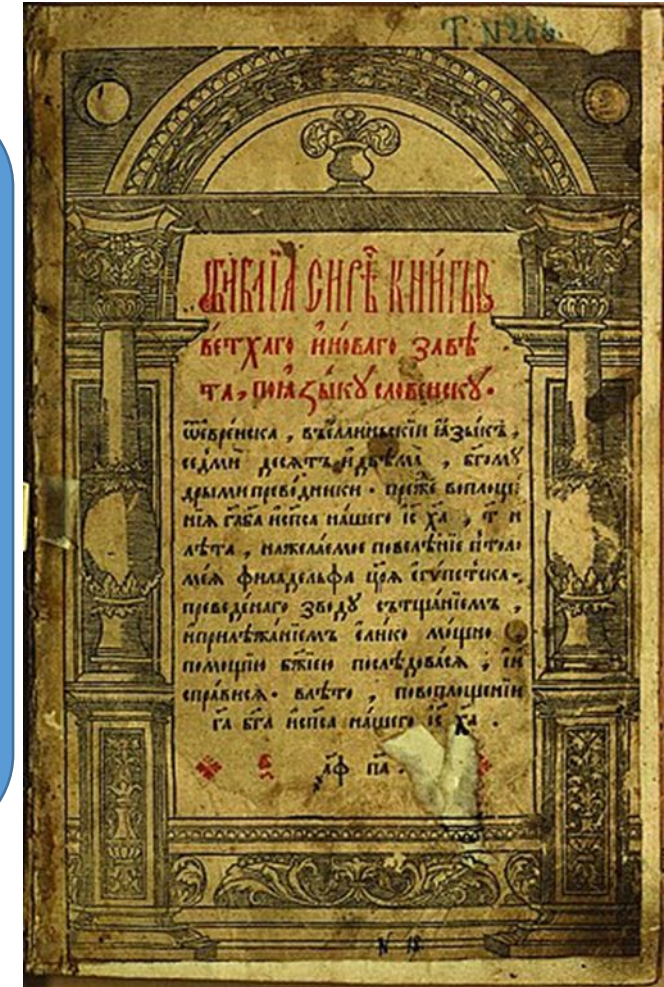 Т. N266.
БИБЛІѦ СИРѢ КНИГЫ
ве́тхаго и҆но́ваго завѣ
та, поꙗ҆зы́кꙋ словенскꙋ.
ѿеврейска, въе́ллиньскїи ꙗ҆зы́къ,
се́дмиде десѧтъ и҆двѣма, бг҃омꙋ
дрыми преводники. пре́же воплоще
нїѧ га҃ба и҆сп҃са на́шего і҆с х҃а, т҃ и
лѣ́та, нажела́емое повелѣ́нїе птол
ме́ѧ филаде́льфа цр҃ѧ е҆гѵпетска,
преведе́наго зводꙋ сътща́нїемъ,
и҆прилѣжа́нїемъ е҆ли́ко мо́щно
помощїю бж҃їею послѣ́довасѧ, и҆и
спра́висѧ. влѣ́то, повоплоще́нїи
га҃ бг҃а и҆сп҃са на́шего і҆с х҃а.
҂аф па.
N 18